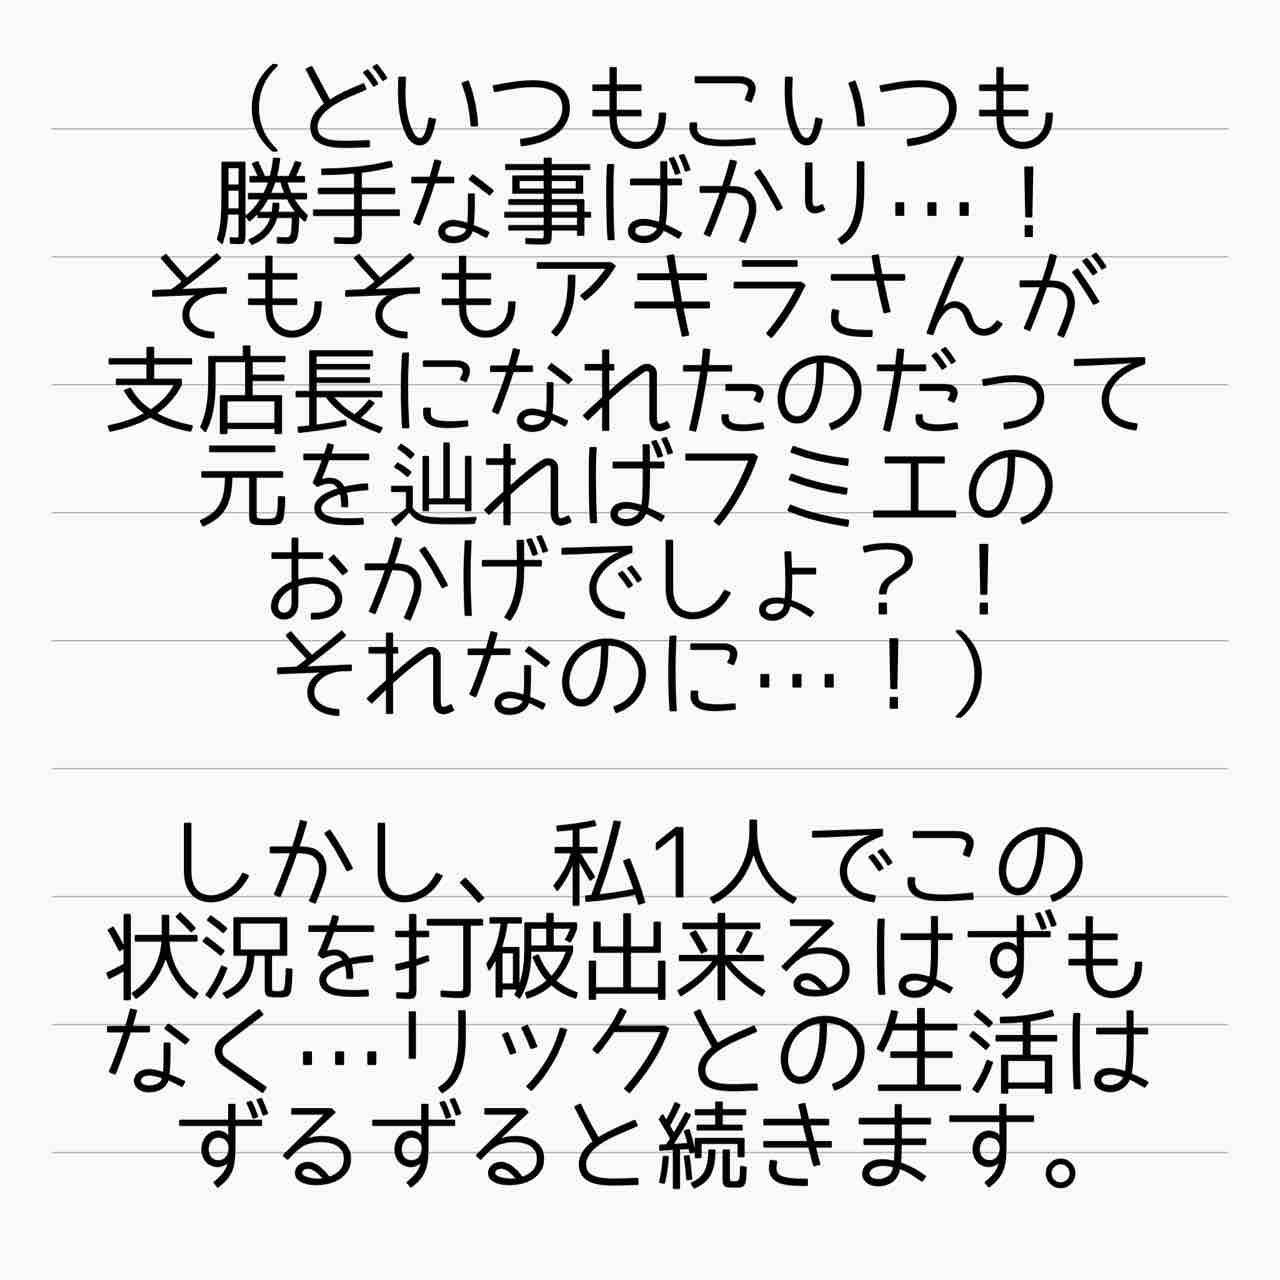 （どいつもこいつも
勝手な事ばかり…！
そもそもアキラさんが
支店長になれたのだって
元を辿ればフミエの
おかげでしょ？！
それなのに…！）
しかし、私1人でこの
状況を打破出来るはずも
なく…リックとの生活は
ずるずると続きます。